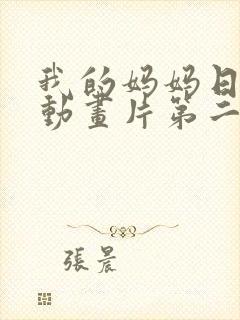 我的妈妈日
動畫片第二
張晨